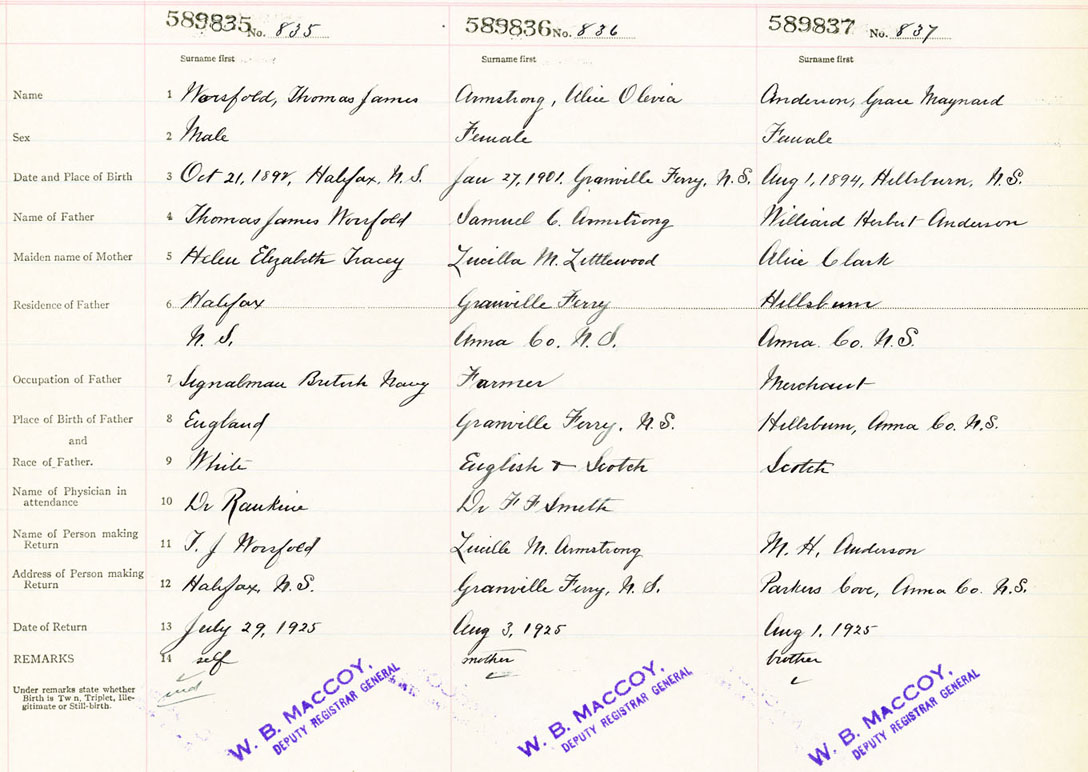 589835 No. 835 589836 No. 836 589837 No. 837
Surname first Surname first Surname first
Name 1 Worsfold, Thomas James Armstrong, Alice Olevia Anderson, Grace Maynard
Sex 2 Male Female Female
Date and Place of Birth 3 Oct 21, 1892, Halifax, N.S. Jan 27, 1901. Granville Ferry, N.S. Aug 1, 1894, Hillsburn, N.S.
Name of Father 4 Thomas James Worsfold Samuel C. Armstrong Williard Herbert Anderson
Maiden name of Mother 5 Helen Elizabeth Tracey Lucilla M. Littlewood Alice Clark
Residence of Father 6 Halifax Granville Ferry Hillsburn
N. S. Anna Co. N.S. Anna. Co. N.S.
Occupation of Father 7 Signalman British Navy Farmer Merchant
Place of Birth of Father 8 England Granville Ferry, N.S. Hillsburn, Anna Co. N.S.
and
Race of Father. 9 White English & Scotch Scotch
Name of Physician in
attendance 10 Dr Rankine Dr F F Smith
Name of Person making
Return 11 T. J Worsfold Lucille M. Armstrong M. H. Anderson
Address of Person making
Return 12 Halifax, N.S. Granville Ferry, N. S. Parkers Cove, Anna Co. N.S.
Date of Return 13 July 29, 1925 Aug 3, 1925 Aug 1, 1925
REMARKS 14 self mother brother
Under remarks state whether
Birth is Twin, Triplet, Ille-
gitimate or Still-birth.
ind
W. B. MACCOY, W. B. MACCOY, W. B. MACCOY,
DEPUTY REGISTRAR GENERAL DEPUTY REGISTRAR GENERAL DEPUTY REGISTRAR GENERAL